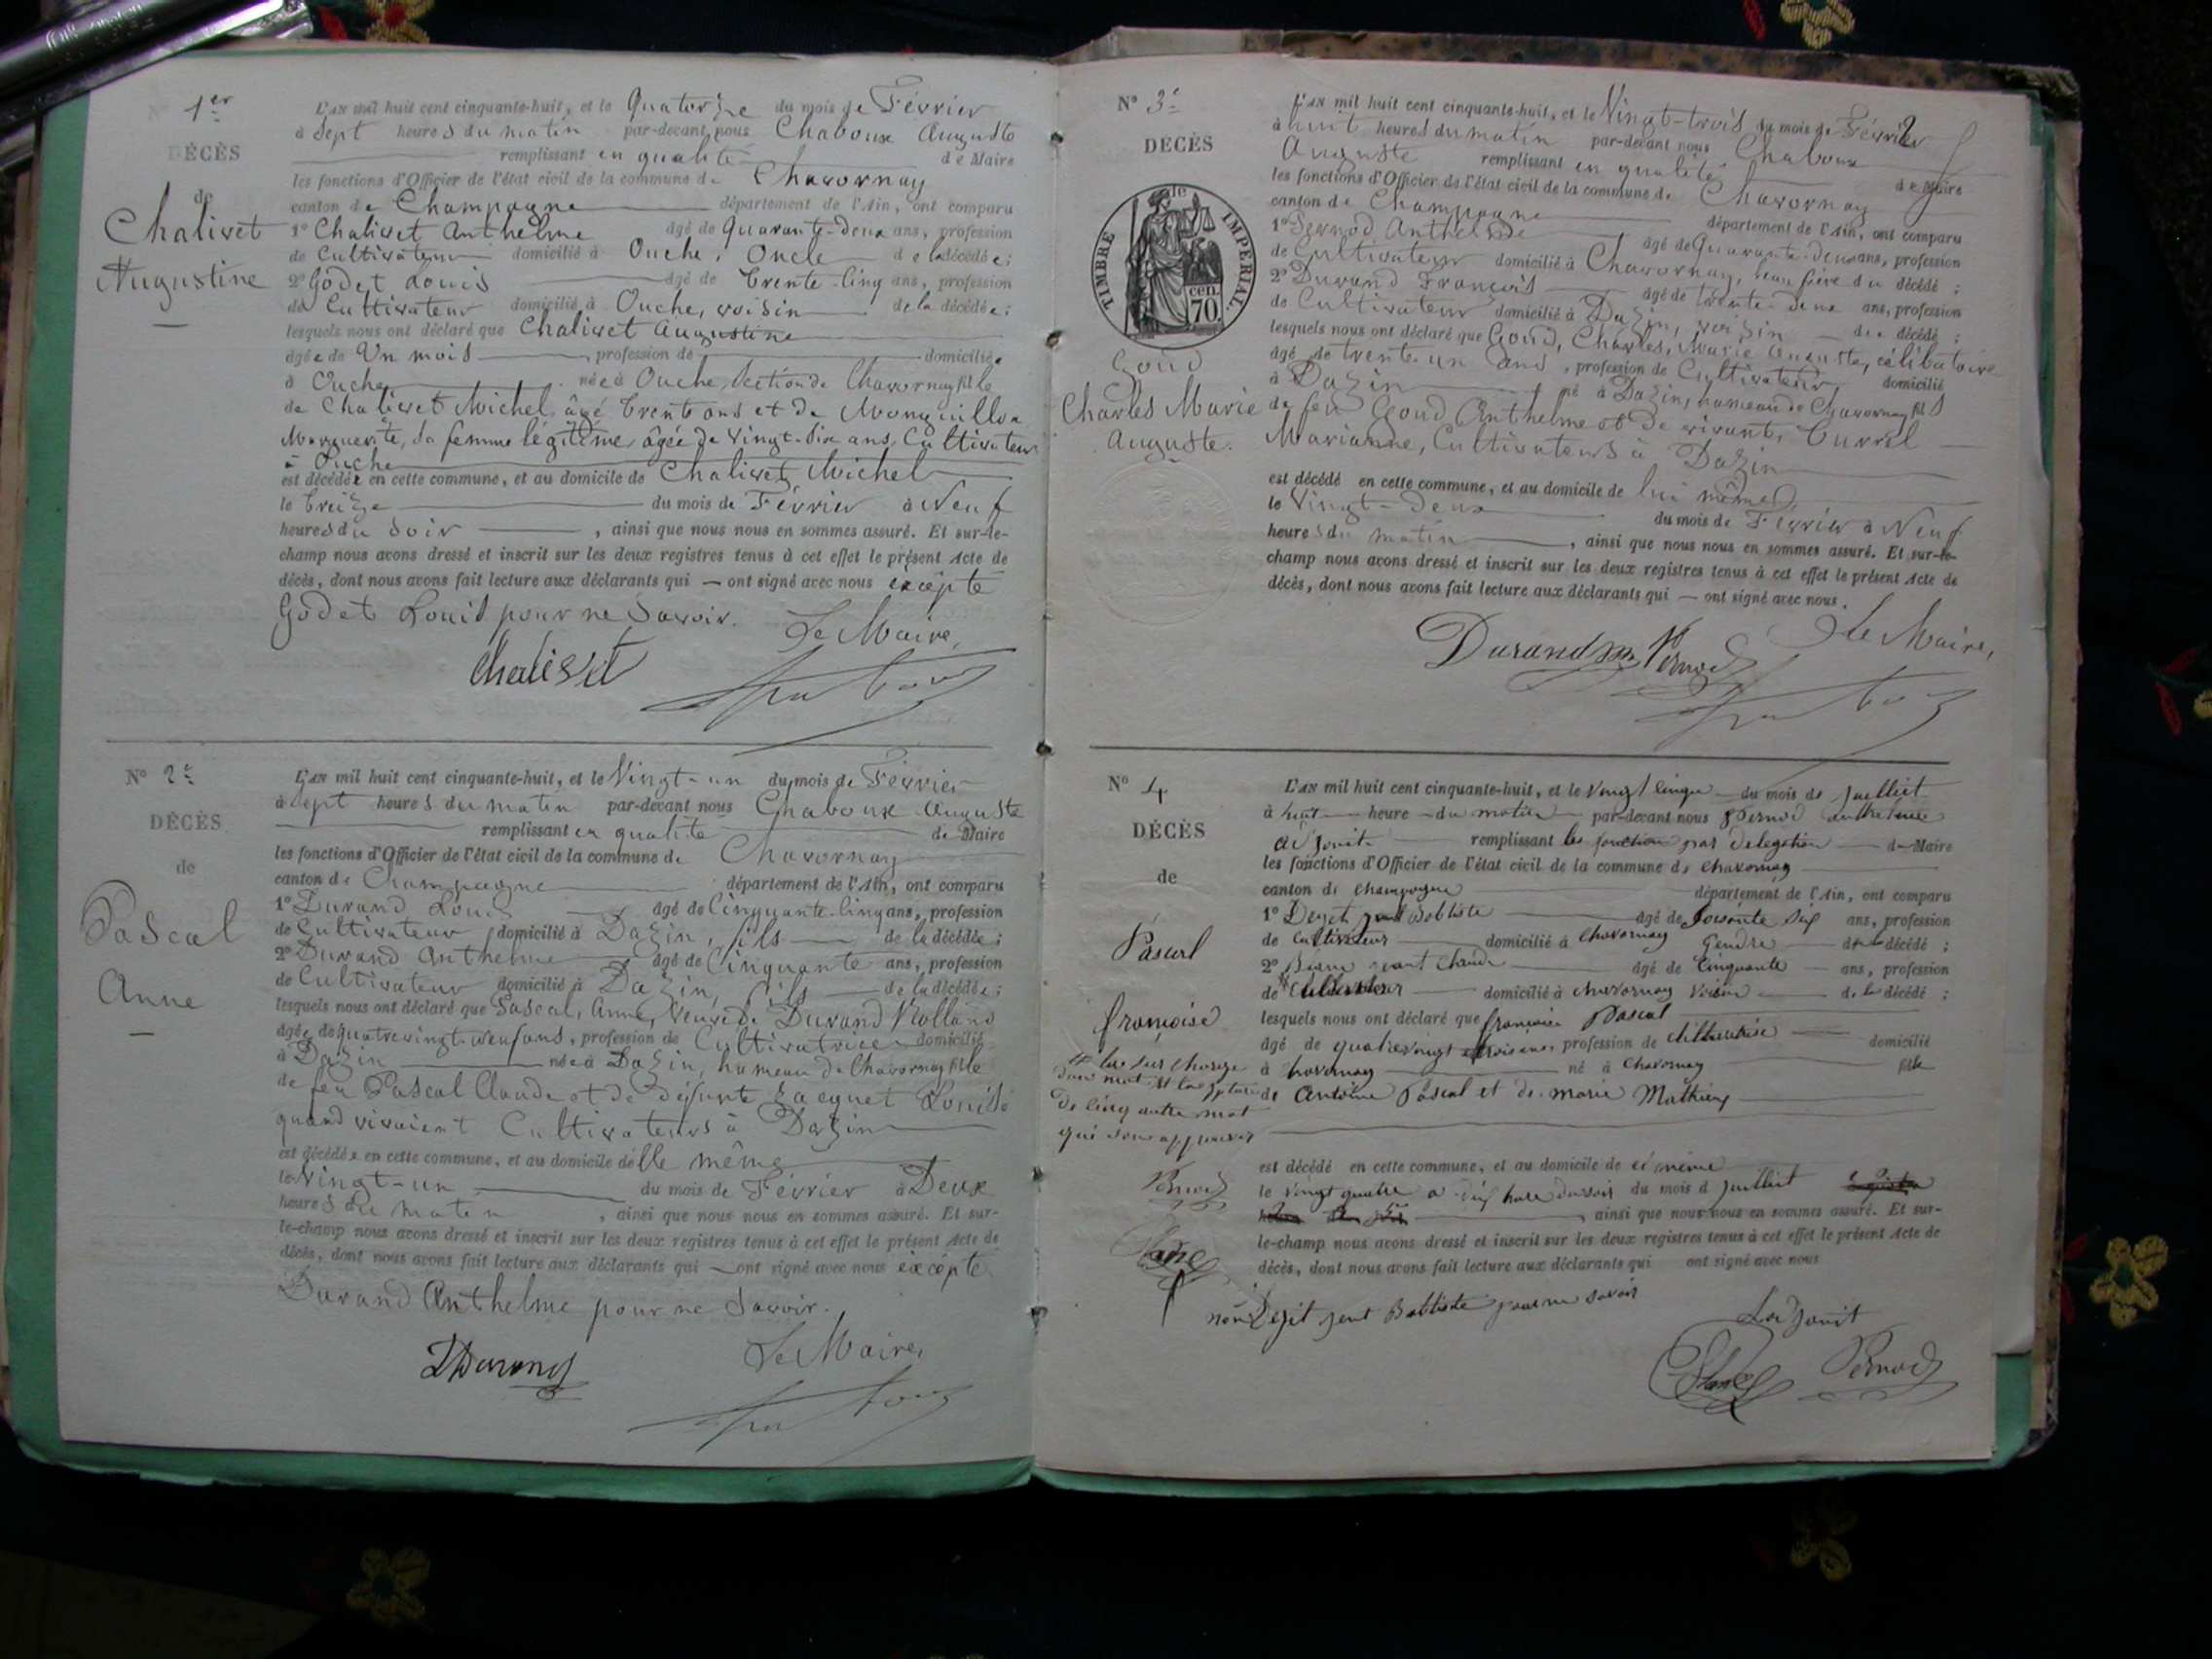 1er
DÉCÈS
de
Chalivet
Augustine
L'AN mil huit cent cinquante-huit, et le Quatorze du mois de Février
à Sept heures du matin par-devant nous Chaboux Auguste
remplissant en qualité de Maire
les fonctions d'Officier de l'état civil de la commune de Chavornay
canton de Champagne département de l'Ain, ont comparu
1° Chalivet Anthelme âgé de Quarante-deux ans, profession
de Cultivateur domicilié à Ouche, Oncle de la décédée;
2° Godet Louis âgé de trente-cinq ans, profession
de Cultivateur domicilié à Ouche, voisin de la décédée;
lesquels nous ont déclaré que Chalivet Augustine
âgée de Un mois, profession de domiciliée
à Ouche née à Ouche, Section de Chavornay fille
de Chalivet Michel, âgé trente ans et de
Marguerite, sa femme légitime, âgée de vingt-six ans, Cultivateurs
à Ouche
est décédée en cette commune, et au domicile de Chalivet Michel
le treize du mois de Février à Neuf
heures du soir, ainsi que nous nous en sommes assuré. Et sur-le-
champ nous avons dressé et inscrit sur les deux registres tenus à cet effet le présent Acte de
décès, dont nous avons fait lecture aux déclarants qui — ont signé avec nous excepté
Godet Louis pour ne savoir. Le Maire,
Chalivet
N° 2e
DÉCÈS
de
Pascal
Anne
L'AN mil huit cent cinquante-huit, et le Vingt-un du mois de Février
à sept heures du matin par-devant nous Chaboux Auguste
remplissant en qualité de Maire
les fonctions d'Officier de l'état civil de la commune de Chavornay
canton de Champagne département de l'Ain, ont comparu
1° Durand Louis âgé de Cinquante-cinq ans, profession
de Cultivateur domicilié à Dazin, fils de la décédée;
2° Durand Anthelme âgé de Cinquante ans, profession
de Cultivateur domicilié à Dazin, fils de la décédée;
lesquels nous ont déclaré que Pascal, Anne, Veuve de Durand Rolland
âgée de quatrevingt-neuf ans, profession de Cultivatrice domiciliée
à Dazin née à Dazin, hameau de Chavornay fille
de feu Pascal Claude et de défunte Jacquet Louise
quand vivaient Cultivateurs à Dazin
est décédée en cette commune, et au domicile d'elle même
le Vingt-un du mois de Février à Deux
heures du matin, ainsi que nous nous en sommes assuré. Et sur-
le-champ nous avons dressé et inscrit sur les deux registres tenus à cet effet le présent Acte de
décès, dont nous avons fait lecture aux déclarants qui — ont signé avec nous excepté
Durand Anthelme pour ne savoir.
LDurand Le Maire,
N° 3e
DÉCÈS
de
TIMBRE IMPÉRIAL.
70 cen.
Goud
Charles Marie
Auguste.
L'AN mil huit cent cinquante-huit, et le Vingt-trois du mois de Février
à huit heures du matin par-devant nous Chaboux
Auguste remplissant en qualité de Maire
les fonctions d'Officier de l'état civil de la commune de Chavornay
canton de Champagne département de l'Ain, ont comparu
1° Pernod Anthelme âgé de Quarante-deux ans, profession
de Cultivateur domicilié à Chavornay, beau frère du décédé;
2° Durand François âgé de trente-deux ans, profession
de Cultivateur domicilié à Dazin, voisin du décédé;
lesquels nous ont déclaré que Goud, Charles, Marie Auguste, célibataire
âgé de trente-un ans, profession de Cultivateur, domicilié
à Dazin né à Dazin, hameau de Chavornay fils
de feu Goud Anthelme et de vivante
Marianne, Cultivateurs à Dazin
est décédé en cette commune, et au domicile de lui même
le Vingt-deux du mois de Février à Neuf
heures du matin, ainsi que nous nous en sommes assuré. Et sur-le-
champ nous avons dressé et inscrit sur les deux registres tenus à cet effet le présent Acte de
décès, dont nous avons fait lecture aux déclarants qui — ont signé avec nous.
Le Maire,
Durand Pernod
N° 4
DÉCÈS
de
Pascal
françoise
L'AN mil huit cent cinquante-huit, et le vingt cinque du mois de juillet
à huit heure du matin par-devant nous Pernod anthelme
adjoint remplissant les fonction par delegation de Maire
les fonctions d'Officier de l'état civil de la commune de chavornay
canton de champagne département de l'Ain, ont comparu
1° Batiste âgé de soisante ans, profession
de cultivateur domicilié à chavornay Gendre décédé;
2° Claude âgé de Cinquante ans, profession
de cultivateur domicilié à chavornay voisin de la décédé;
lesquels nous ont déclaré que françoise Pascal
âgé de quatrevingt trois ans profession de domicilié
à havornay né à chavornay fille
de Antoine Pascal et de marie Mathieu
est décédé en cette commune, et au domicile de
le vingt quatre a hure du soir du mois d juillet
, ainsi que nous nous en sommes assuré. Et sur-
le-champ nous avons dressé et inscrit sur les deux registres tenus à cet effet le présent Acte de
décès, dont nous avons fait lecture aux déclarants qui ont signé avec nous
non Batiste pour ne savoir
Ladjouit
Pernod
de cinq autre mot
Pernod